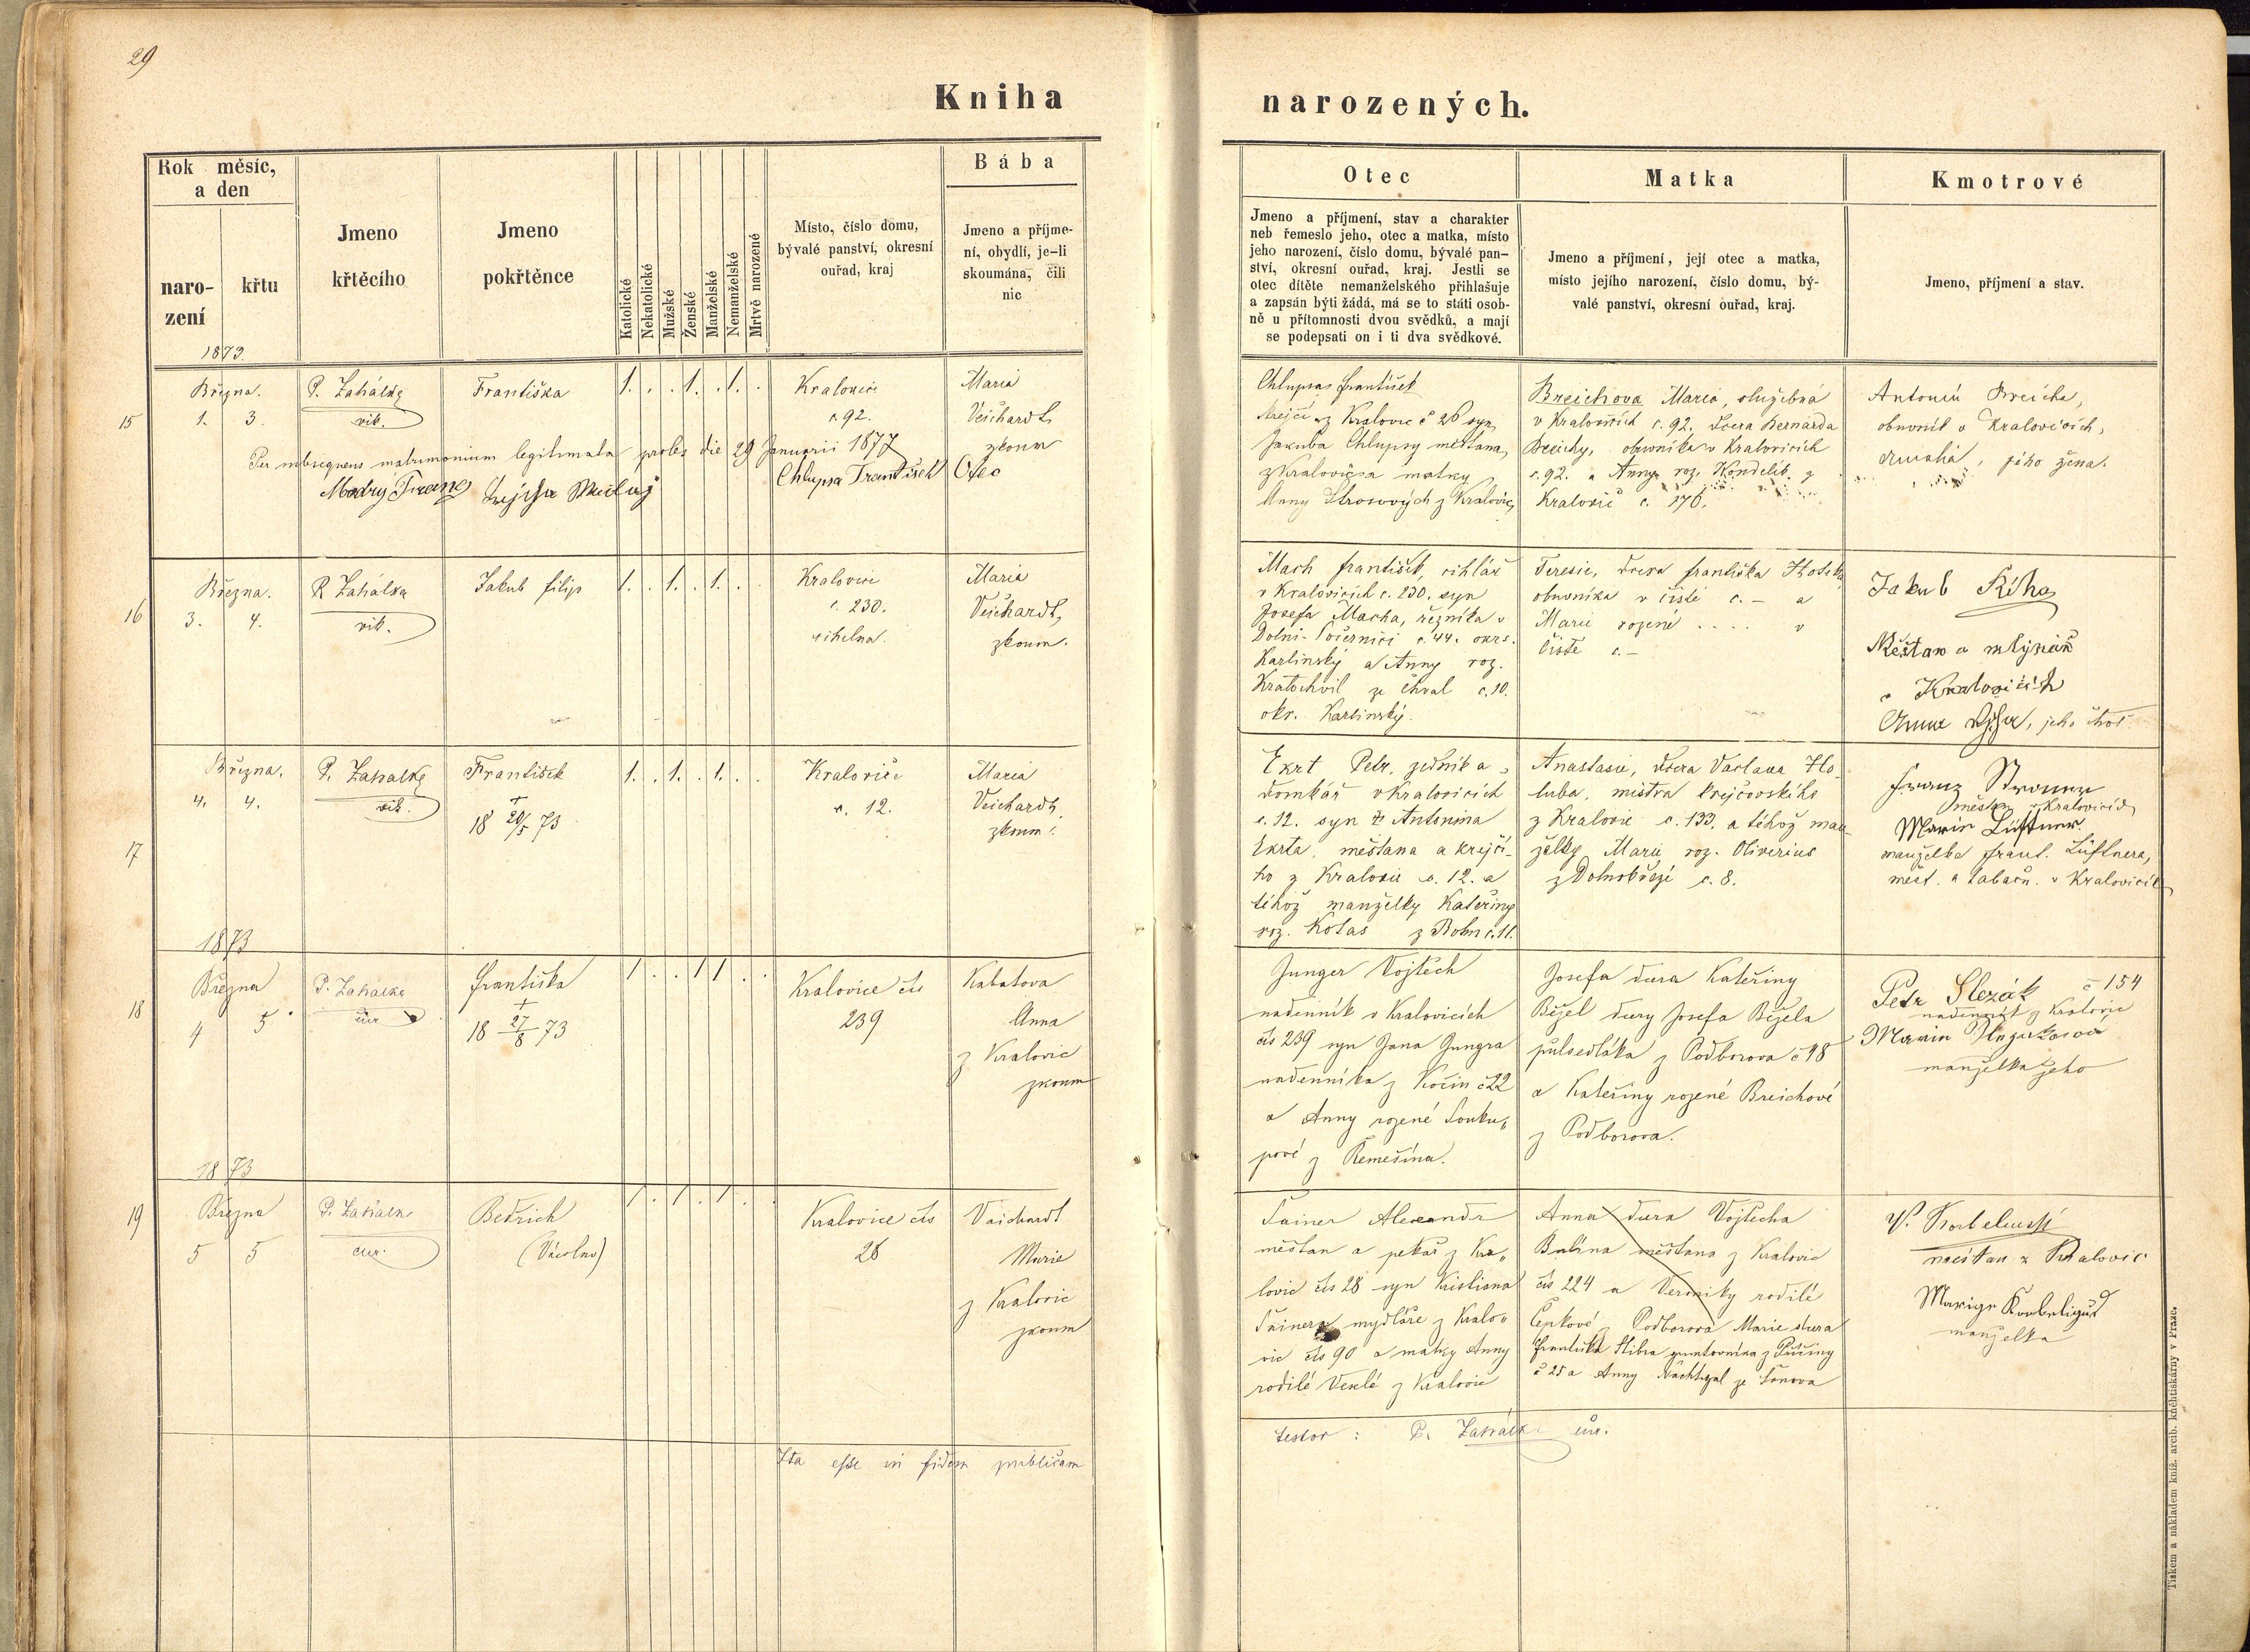 29
Kniha narozených.
Rok měsíc, a den
narození
křtu
Jmeno křtěcího
Jmeno pokřtěnce
Katolické
Nekatolické
Mužské
Ženské
Manželské
Nemanželské
Mrtvě narozené
Místo, číslo domu, bývalé panství, okresní ouřad, kraj
Bába
Jmeno a příjmení, obydlí, je-li skoumána, čili nic
Otec
Jmeno a příjmení, stav a charakter
neb řemeslo jeho, otec a matka, místo
jeho narození, číslo domu, bývalé pan-
ství, okresní ouřad, kraj. Jestli se
otec dítěte nemanželského přihlašuje
a zapsán býti žádá, má se to státi osob-
ně u přítomnosti dvou svědků, a mají
se podepsati on i ti dva svědkové.
Matka
Jmeno a příjmení, její otec a matka,
místo jejího narození, číslo domu, bý-
valé panství, okresní ouřad, kraj.
Kmotrové
Jmeno, příjmení a stav.
1873.
15
Března.
1. 3.
P. Zahálka
vik.
Františka
1. . . 1. . 1. .
Kralovice
č. 92.
Maria
Veichardt,
zkoum
Per subsequens matrimonium legitimata proles die 29 Januarii 1877
Modrý Franc
Chlupsa František Otec
Chlupsa František
krejčí z Kralovic č 26 syn
Jakuba Chlupsy měšťana
z Kralovic a matky
Anny Strosových z Kralovic,
Breichova Maria, služebná
v Kralovicích č. 92, dcera Bernarda
Breichy, obuvníka v Kralovicích
č. 92. a Anny roz. Kondelík z
Kralovic č. 176.
Antonín Breicha,
obuvník v Kralovicích,
jeho žena.
16
Března.
3. 4.
P. Zahálka
vik.
Jakub Filip
1. . 1. . 1. . .
Kralovice
č. 230.
cihelna.
Maria
Veichardt,
zkoum.
Mach František, cihlář
v Kralovicích č. 230. syn
Josefa Macha, řezníka v
Dolní-Počernici č. 44. okrs.
Karlínský a Anny roz.
Kratochvil ze Chval č. 10.
okr. Karlínský.
Teresie, dcera Františka
obuvníka v Čisté č. – a
Marie rozené .... v
Čisté č. –
Jakub Říha
Měšťan a mlynář
v Kralovicích
Anna, jeho choť
17
Března.
4. 4.
P. Zahálka
vik.
František
+
18 20/5 73
1. . 1. . 1. . .
Kralovice
č. 12.
Maria
Veichardt,
zkoum.
Ekrt Petr, zedník a
domkář v Kralovicích
č. 12. syn Antonína
Ekrta, měšťana a krejčí-
ho z Kralovic č. 12. a
téhož manželky Kateřiny
roz. Kotas z Bohn č. 11.
Anastasie, dcera Václava Ho-
luba, mistra krejčovského
z Kralovic č. 133. a téhož man-
želky Marie roz. Oliverius
z Dolnobřezí č. 8.
Franz
měšťan v Kralovicích
Marie Lüftner.
manželka Frant. Lüftnera,
měšť. a tabačn. v Kralovicích
1873
18
Března
4 5
P. Zahálka
cur
Františka
+
18 27/8 73
1 . . 1 1 . .
Kralovice čís
239
Kabatova
Anna
z Kralovic
zkoum
Junger Vojtěch
nadenník v Kralovicích
čís 239 syn Jana Jungra
nadenníka z Kočin č 22
a Anny rozené Souku„
pové z Řemešína.
Josefa dcera Kateřiny
Běžel dcery Josefa Bežela
půlsedláka z Podborova č 18
a Kateřiny rozené Breichové
z Podborova.
Petr Slezák č 154
nadenník z Kralovic
Marie
manželka jeho
1873
19
Března
5 5
P. Zahálka
cur.
Bedřich
1 . 1 . 1 . .
Kralovice čís
28
Vaichardt
Marie
z Kralovic
zkoum
Šainer Alexandr
měšťan a pekař z Kra„
lovic čís 28 syn Kristiana
Šainera mydláře z Kralo„
vic čís 90 a matky Anny
rodilé Veselé z Kralovic
Anna dcera Vojtěcha
Bulína měšťana z Kralovic
čís 224 a Veroniky rodilé
Čepkové z Podborova Marie dcera
Františka z
č 25 a Anny Nachtigal ze
V.
měšťan z Kralovic
manželka
Ita esse in fidem publicam
testor : P. Zahálka cur.
Tiskem a nákladem kníž. arcib. kněhtiskárny v Praze.